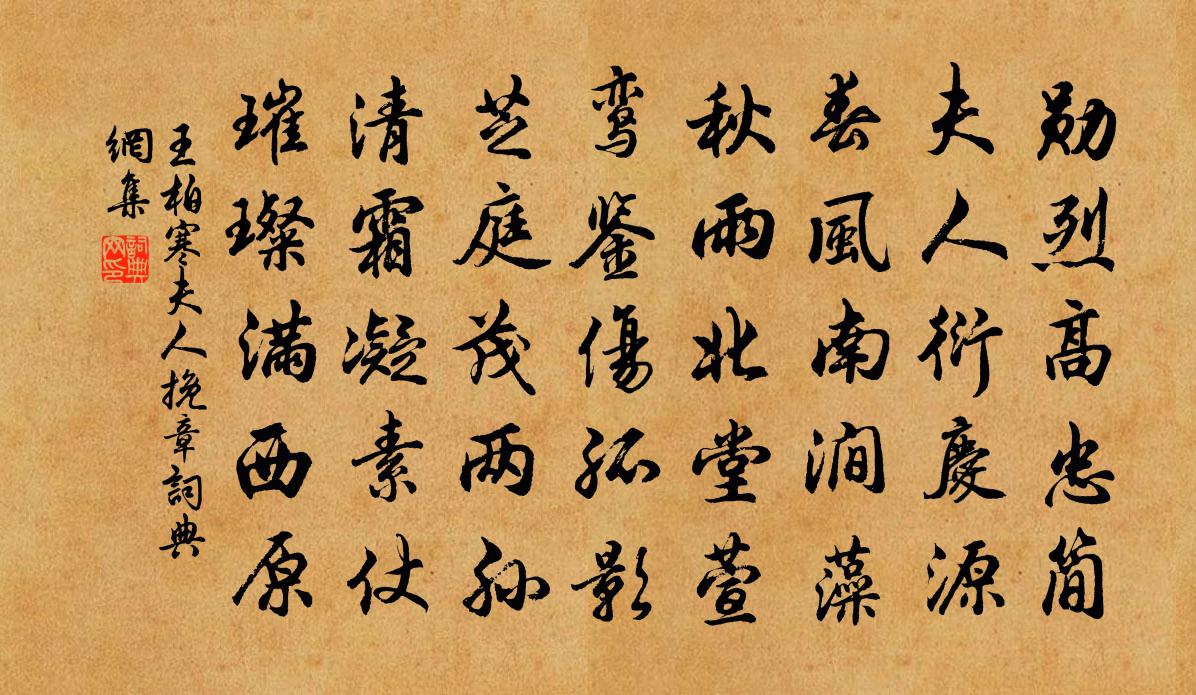 勋烈高忠简
夫人衍慶源
春風南澗藻
秋雨北堂萱
鸾鉴傷孤影
芝庭茂两孙
清霜凝素仗
璀璨满西原
王柏寒夫人挽章詞典
網集
詞典
网印